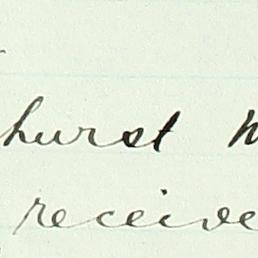 hurst
receive